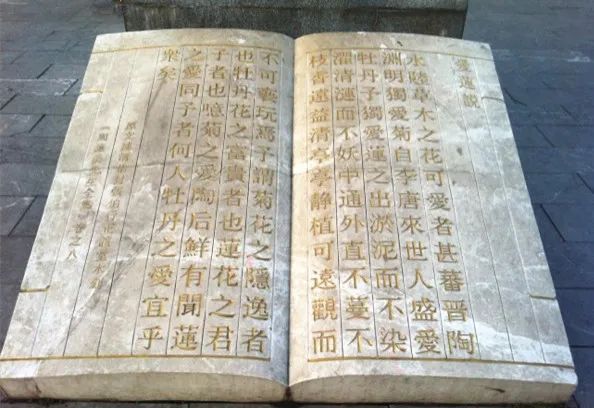 愛蓮說
水陸草木之花可愛者甚蕃晉陶
淵明獨愛菊自李唐來世人盛愛
牡丹予獨愛蓮之出淤泥而不染
濯清漣而不妖中通外直不蔓不
枝香遠益清亭亭静植可遠觀而
不可褻玩焉予謂菊花之隱逸者
也牡丹花之富貴者也蓮花之君
子者也噫菊之愛陶后鮮有聞蓮
之愛同予者何人牡丹之愛宜乎
衆矣
原文據清康熙張伯行正誼堂木刻
《周濂溪先生全集》卷之八